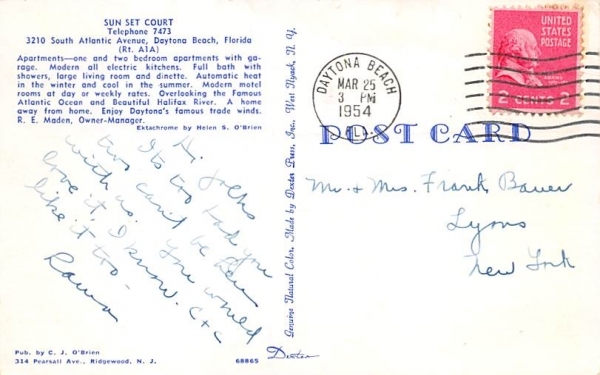 SUN SET COURT
Telephone 7473
3210 South Atlantic Avenue, Daytona Beach, Florida
(Rt. A1A)
Apartments—one and two bedroom apartments with ga-
rage. Modern all electric kitchens. Full bath with
showers, large living room and dinette. Automatic heat
in the winter and cool in the summer. Modern motel
rooms at day or weekly rates. Overlooking the Famous
Atlantic Ocean and Beautiful Halifax River. A home
away from home. Enjoy Daytona's famous trade winds.
R. E. Maden, Owner-Manager.
Ektachrome by Helen S. O'Brien
Hi, Folks
Its too bad you
two can't be here
with us. You would
love it, I know. C + C
like it too -
Laura
Pub. by C. J. O'Brien
314 Pearsall Ave., Ridgewood, N. J.
68865
Genuine Natural Color. Made by Dexter Press, Inc., West Nyack, N. Y.
Dexter
DAYTONA BEACH
MAR 25
3 PM
1954
FLA.
UNITED
STATES
POSTAGE
2 CENTS 2
POST CARD
Mr. + Mrs. Frank Bauer
Lyons
New York